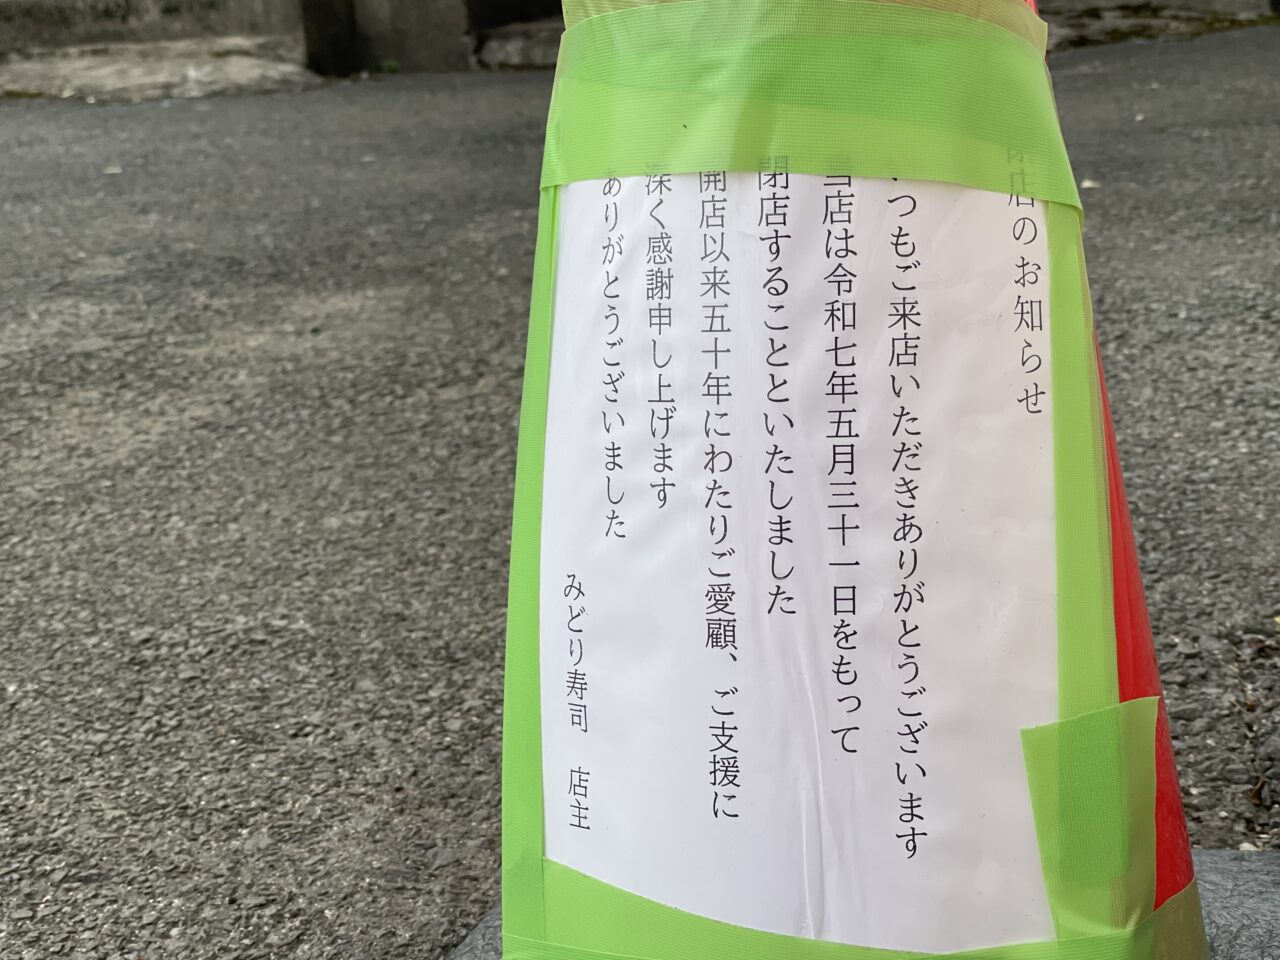 閉店のお知らせ
いつもご来店いただきありがとうございます
当店は令和七年五月三十一日をもって
閉店することといたしました
開店以来五十年にわたりご愛顧、ご支援に
深く感謝申し上げます
ありがとうございました
みどり寿司　店主